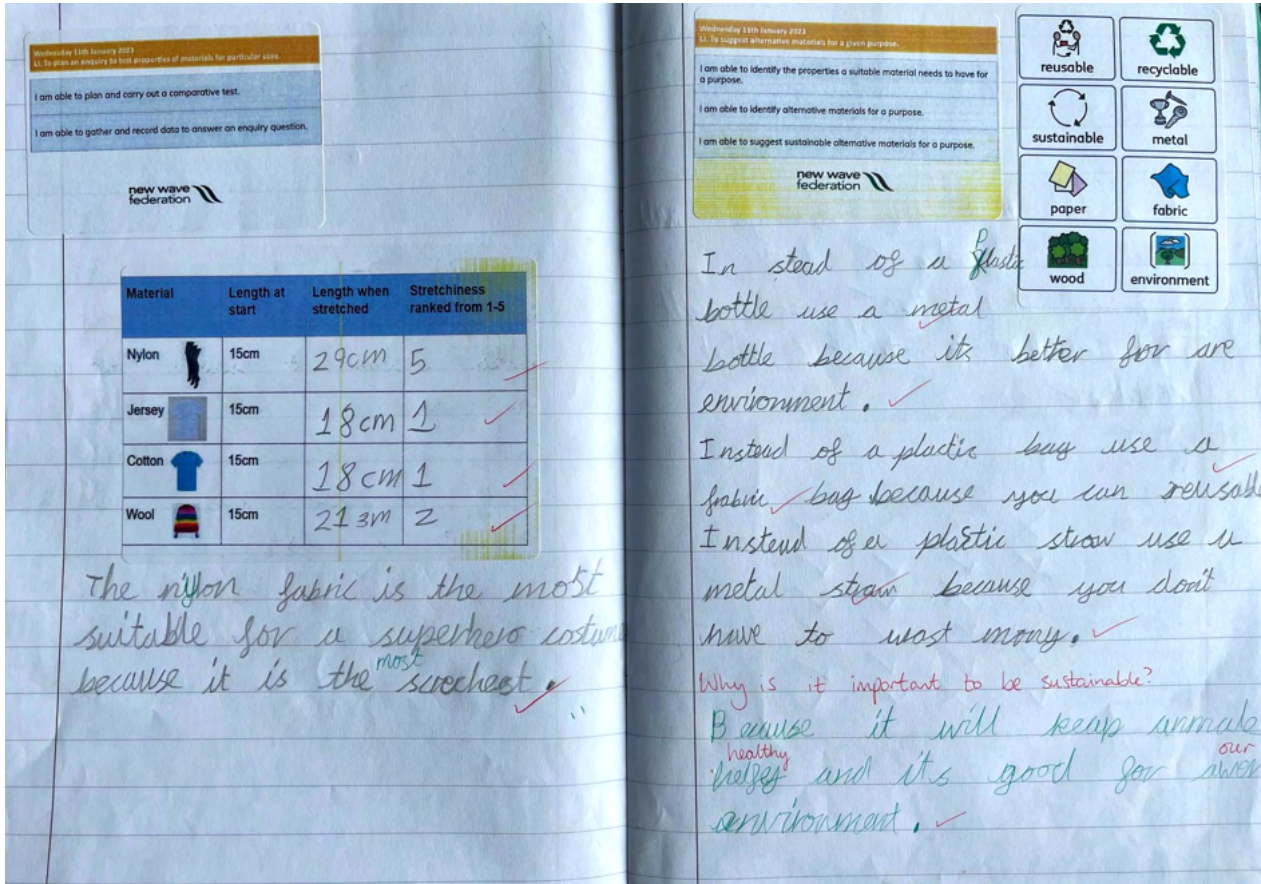 Wednesday 11th January 2023
LI. To plan an enquiry to test properties of materials for particular uses.
I am able to plan and carry out a comparative test.
I am able to gather and record data to answer an enquiry question.
new wave
federation
Material Length at start Length when stretched Stretchiness ranked from 1-5
Nylon 15cm 29cm 5
Jersey 15cm 18cm 1
Cotton 15cm 18cm 1
Wool 15cm 213m 2
The nylon fabric is the most
suitable for a superhero costume
because it is the most scrochest.
Wednesday 11th January 2023
LI. To suggest alternative materials for a given purpose.
I am able to identify the properties a suitable material needs to have for
a purpose.
I am able to identify alternative materials for a purpose.
I am able to suggest sustainable alternative materials for a purpose.
new wave
federation
reusable recyclable
sustainable metal
paper fabric
wood environment
In stead of a Plastic
bottle use a metal
bottle because its better for are
environment.
Instead of a plastic bag use a
frabric bag because you can reusable
Instead of a plastic strow use a
metal because you don't
have to wast mony.
Why is it important to be sustainable?
Because it will keap anmale
healthy
and it's good for our
environment.